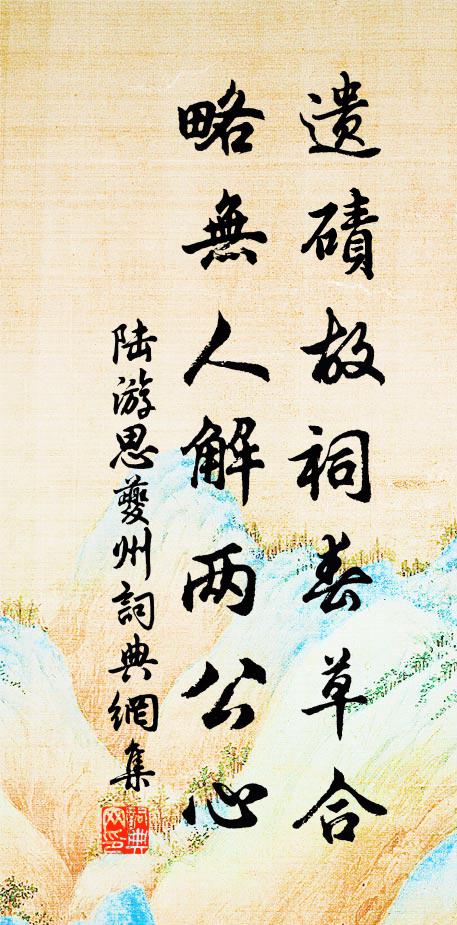 遗磧故祠春草合
略無人解两公心
陆游思夔州詞典網集
詞典网印